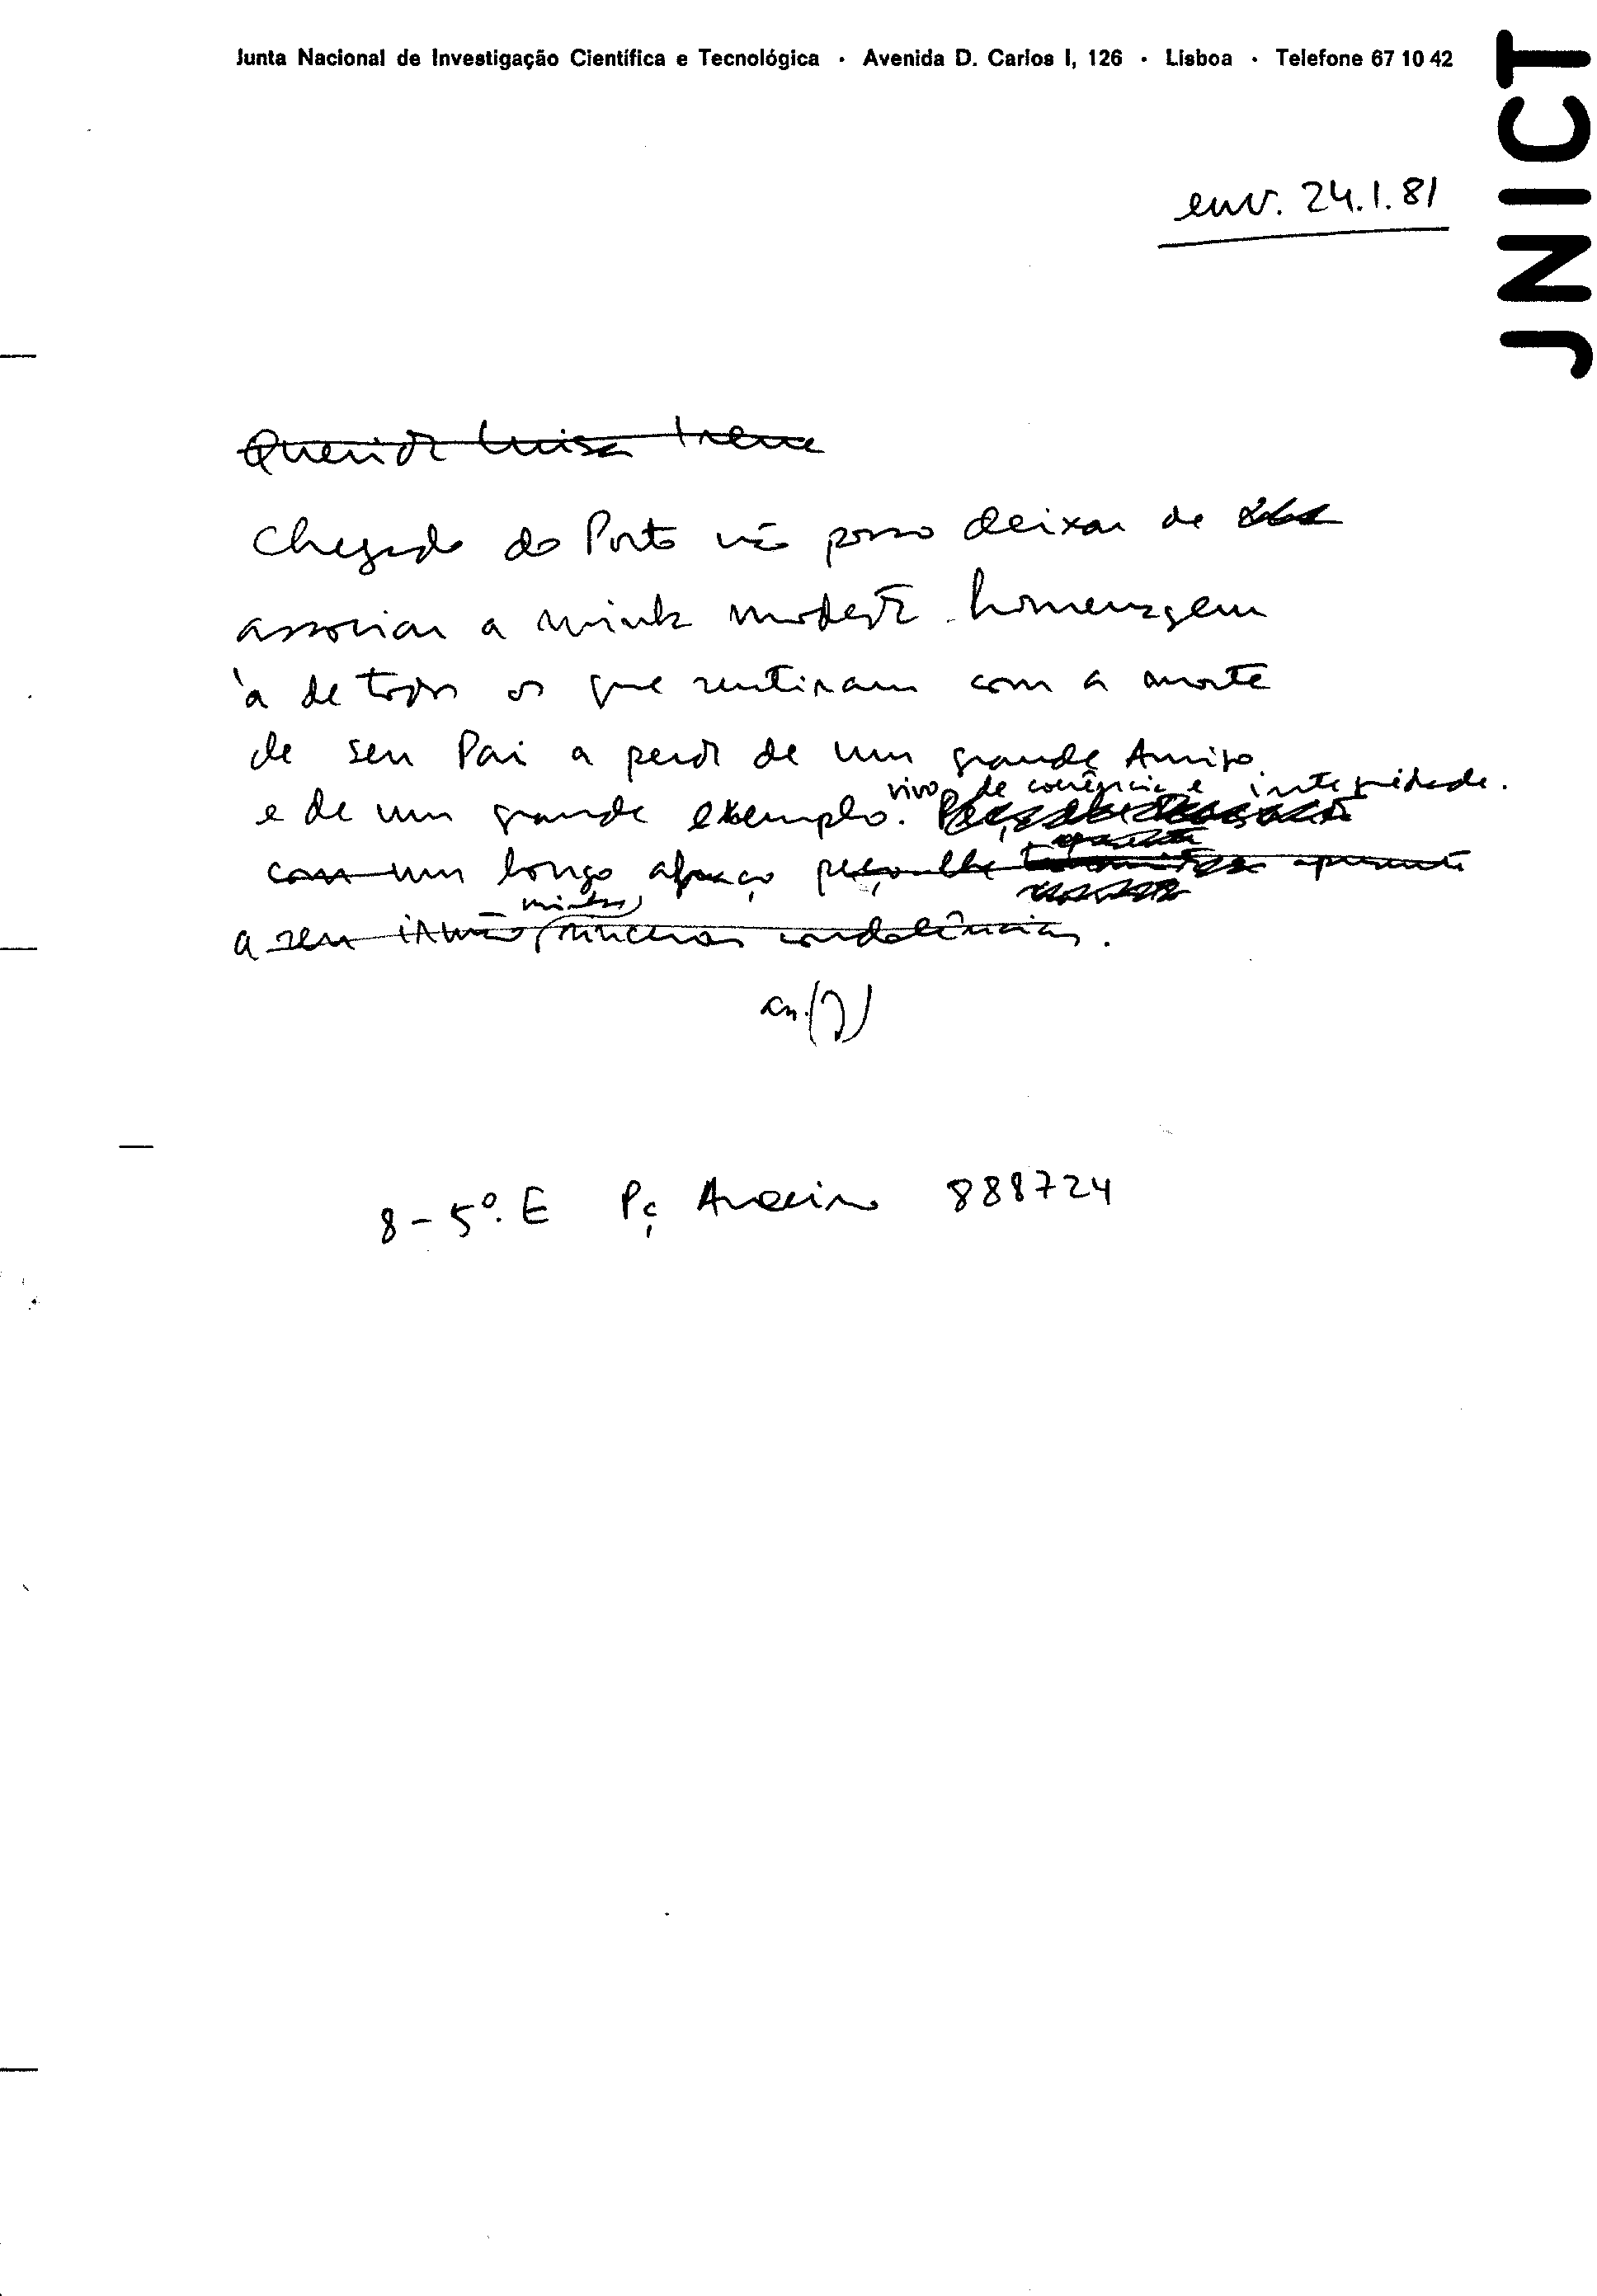 Junta Nacional de Investigação Científica e Tecnológica · Avenida D. Carlos I, 126 · Lisboa · Telefone 67 10 42
JNICT
env. 24.1.81
Querida Luisa Irene
Chegado do Porto não posso deixar de
associar a minha modesta homenagem
à de todos os que sentiram com a morte
de seu Pai a perda de um grande Amigo
e de um grande exemplo vivo de coerência e integridade.
com um longo abraço peço-lhe apresente
a seu irmão minhas sinceras condolências.
as. (J)
8-5º. E Pç Aveiro 888724